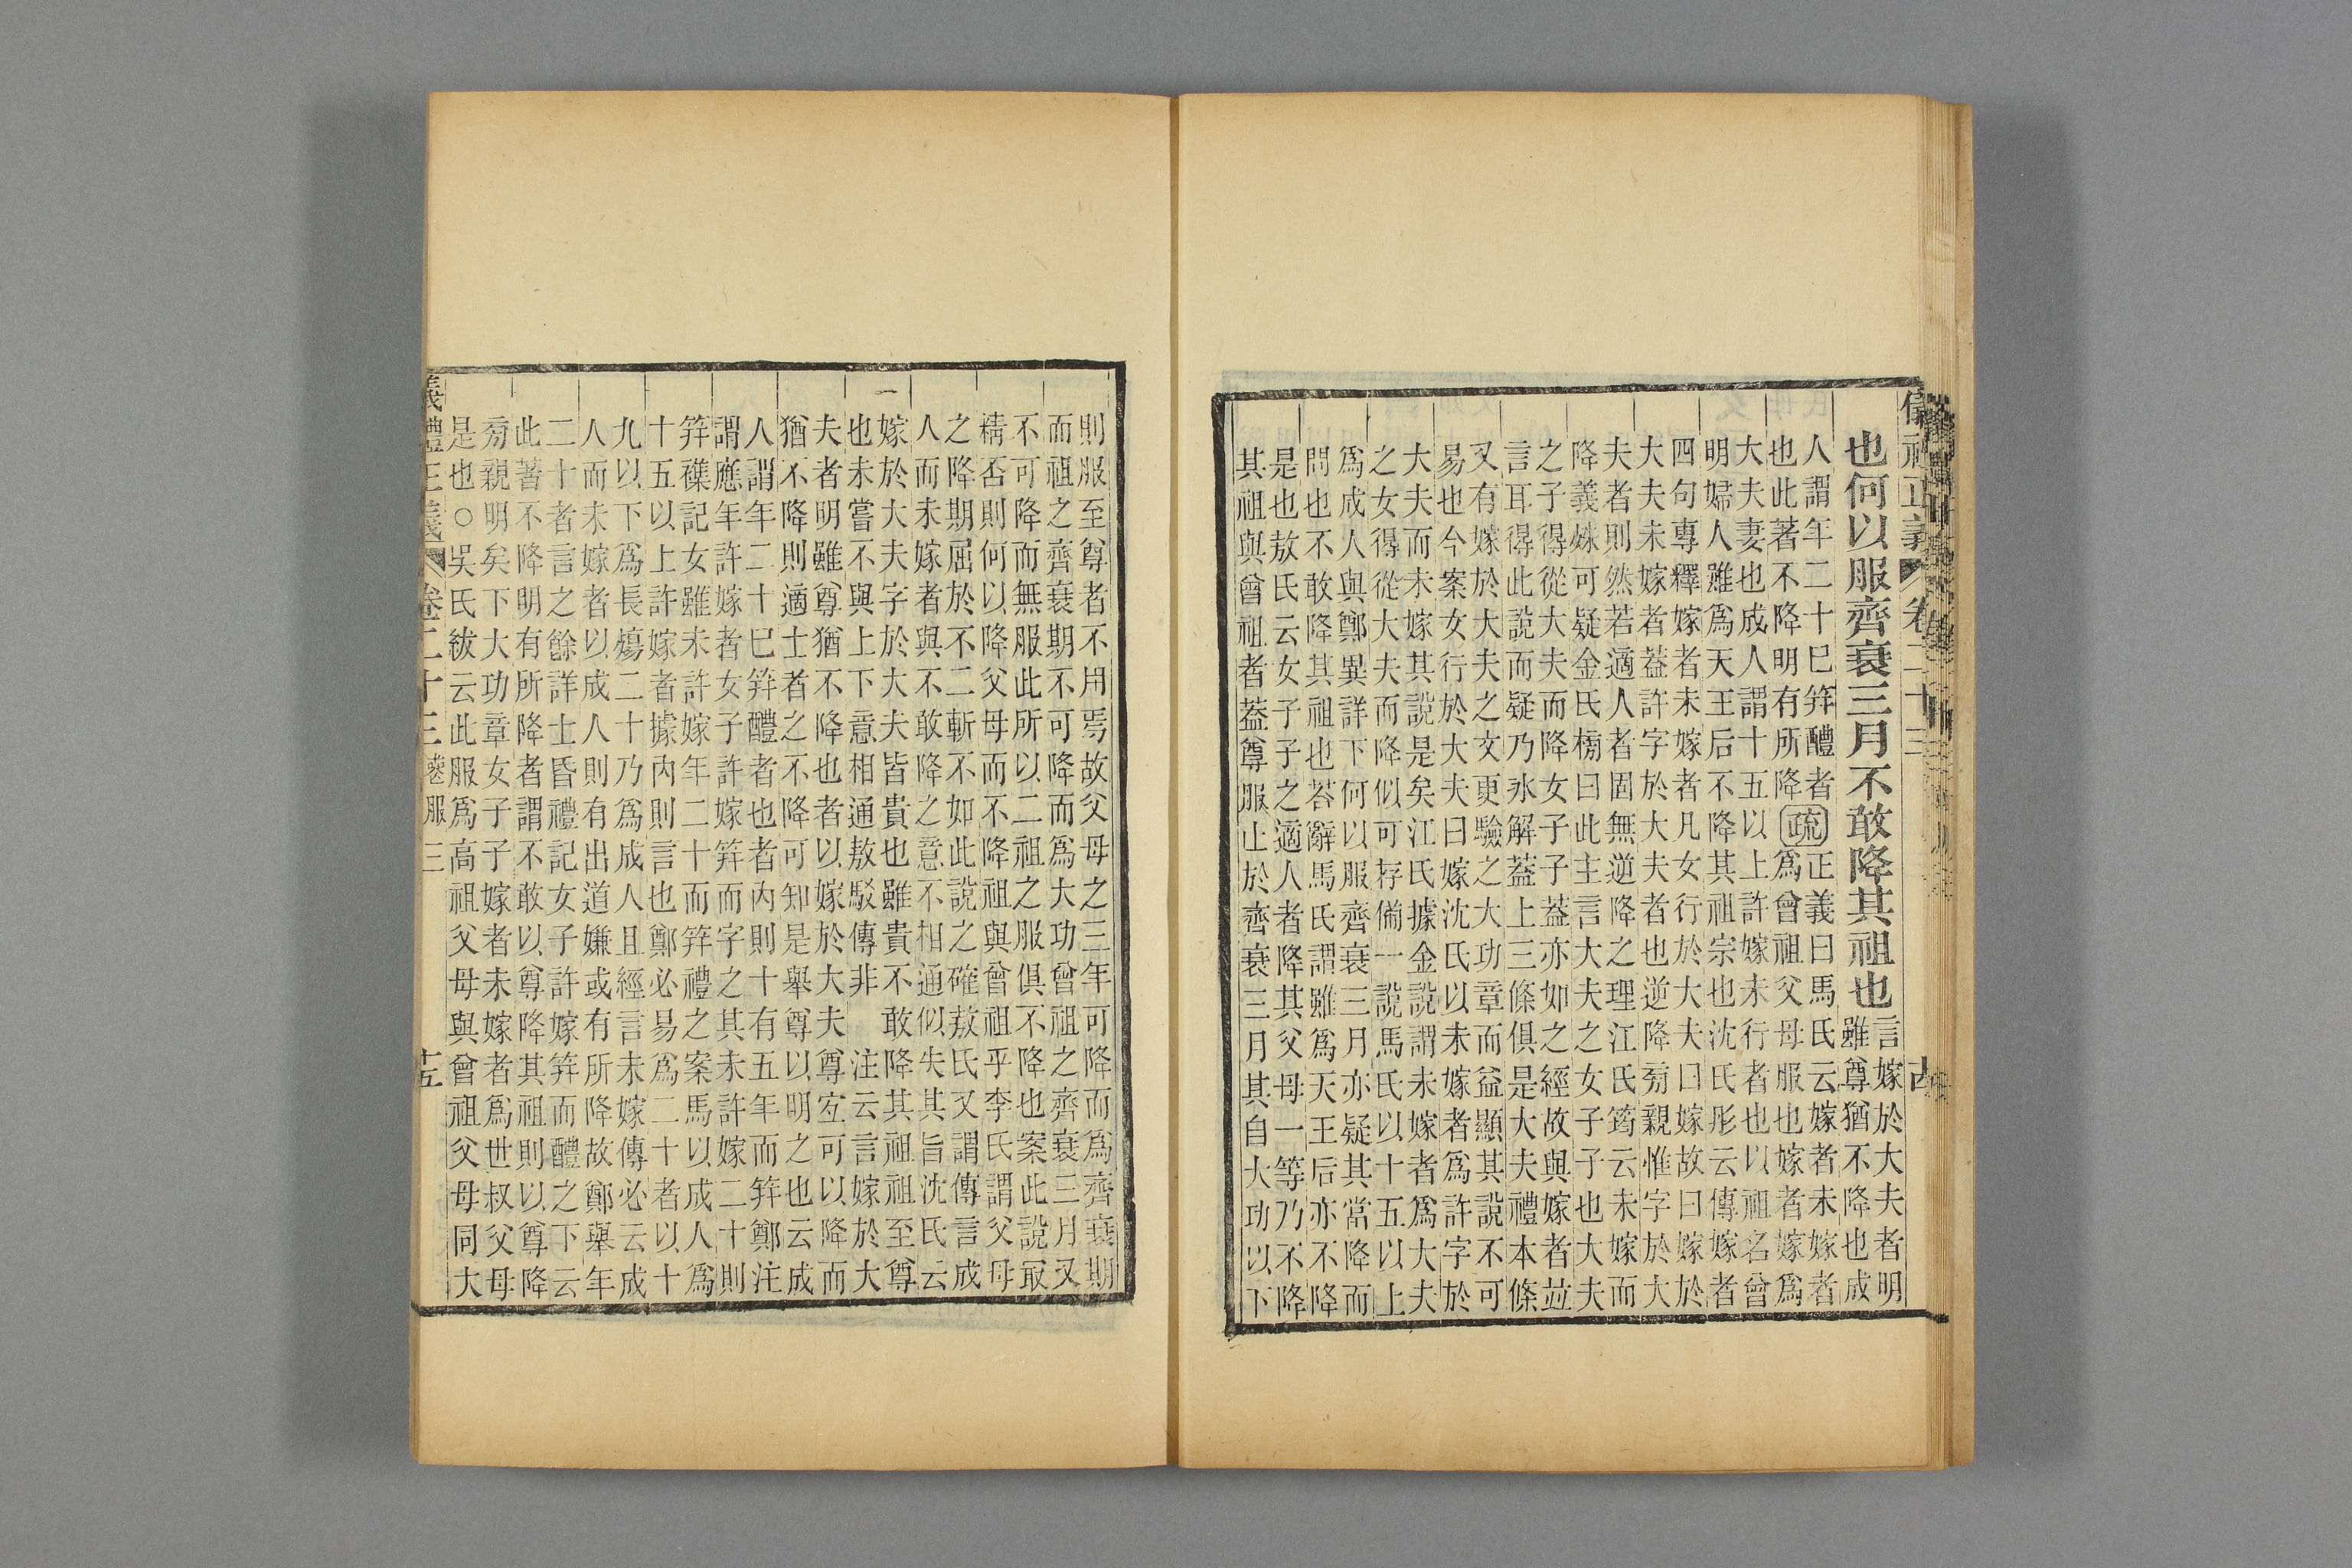 儀禮正義 卷二十三
也何以服齊衰三月不敢降其祖也 言嫁於大夫者明
雖尊猶不降也成
人謂年二十巳笄醴者
也此著不降明有所降
疏 正義曰馬氏云嫁者未嫁者
爲曾祖父母服也嫁者嫁爲
大夫妻也成人謂十五以上許嫁未行者也以祖名曾
明婦人雖爲天王后不降其祖宗也沈氏彤云傳嫁者
四句專釋嫁者未嫁者凡女行於大夫曰嫁故曰嫁於
大夫未嫁者葢許字於大夫者也逆降旁親惟字於大
夫者則然若適人者固無逆降之理江氏筠云未嫁而
降義殊可疑金氏榜曰此主言大夫之女子子也大夫
之子得從大夫而降女子子葢亦如之經故與嫁者竝
言耳得此說而疑乃氷解葢上三條俱是大夫禮本條
又有嫁於大夫之文更驗之大功章而益顯其說不可
易也今案女行於大夫曰嫁沈氏以未嫁者爲許字於
大夫而未嫁其說是矣江氏據金說謂未嫁者爲大夫
之女得從大夫而降似可存備一說馬氏以十五以上
爲成人與鄭異詳下何以服齊衰三月亦疑其當降而
問也不敢降其祖也荅辭馬氏謂雖爲天王后亦不降
是也敖氏云女子子之適人者降其父母一等乃不降
其祖與曾祖者葢尊服止於齊衰三月其自大功以下
則服至尊者不用焉故父母之三年可降而爲齊衰期
而祖之齊衰期不可降而爲大功曾祖之齊衰三月又
不可降而無服此所以二祖之服俱不降也案此說㝡
精否則何以降父母而不降祖與曾祖乎李氏謂父母
之降期屈於不二斬不如此說之確敖氏又謂傳言成
人而未嫁者與不敢降之意不相通似失其旨沈氏云
嫁於大夫字於大夫皆貴也雖貴不敢降其祖祖至尊
也未嘗不與上下意相通敖駁傳非 注云言嫁於大
夫者明雖尊猶不降也者以嫁於大夫尊宜可以降而
猶不降則適士者之不降可知是舉尊以明之也云成
人謂年二十巳笄醴者也者内則十有五年而笄鄭注
謂應年許嫁者女子許嫁笄而字之其未許嫁二十則
笄襍記女雖未許嫁年二十而笄禮之案馬以成人爲
十五以上許嫁者據内則言也鄭必易爲二十者以十
九以下爲長殤二十乃爲成人且經言未嫁傳必云成
人而未嫁者以成人則有出道嫌或有所降故鄭舉年
二十者言之餘詳士昏禮記女子許嫁笄而醴之下云
此著不降明有所降者謂不敢以尊降其祖則以尊降
旁親明矣下大功章女子子嫁者未嫁者爲世叔父母
是也○吳氏紱云此服爲高祖父母與曾祖父母同大
儀禮正義 卷二十三 喪服三 十五